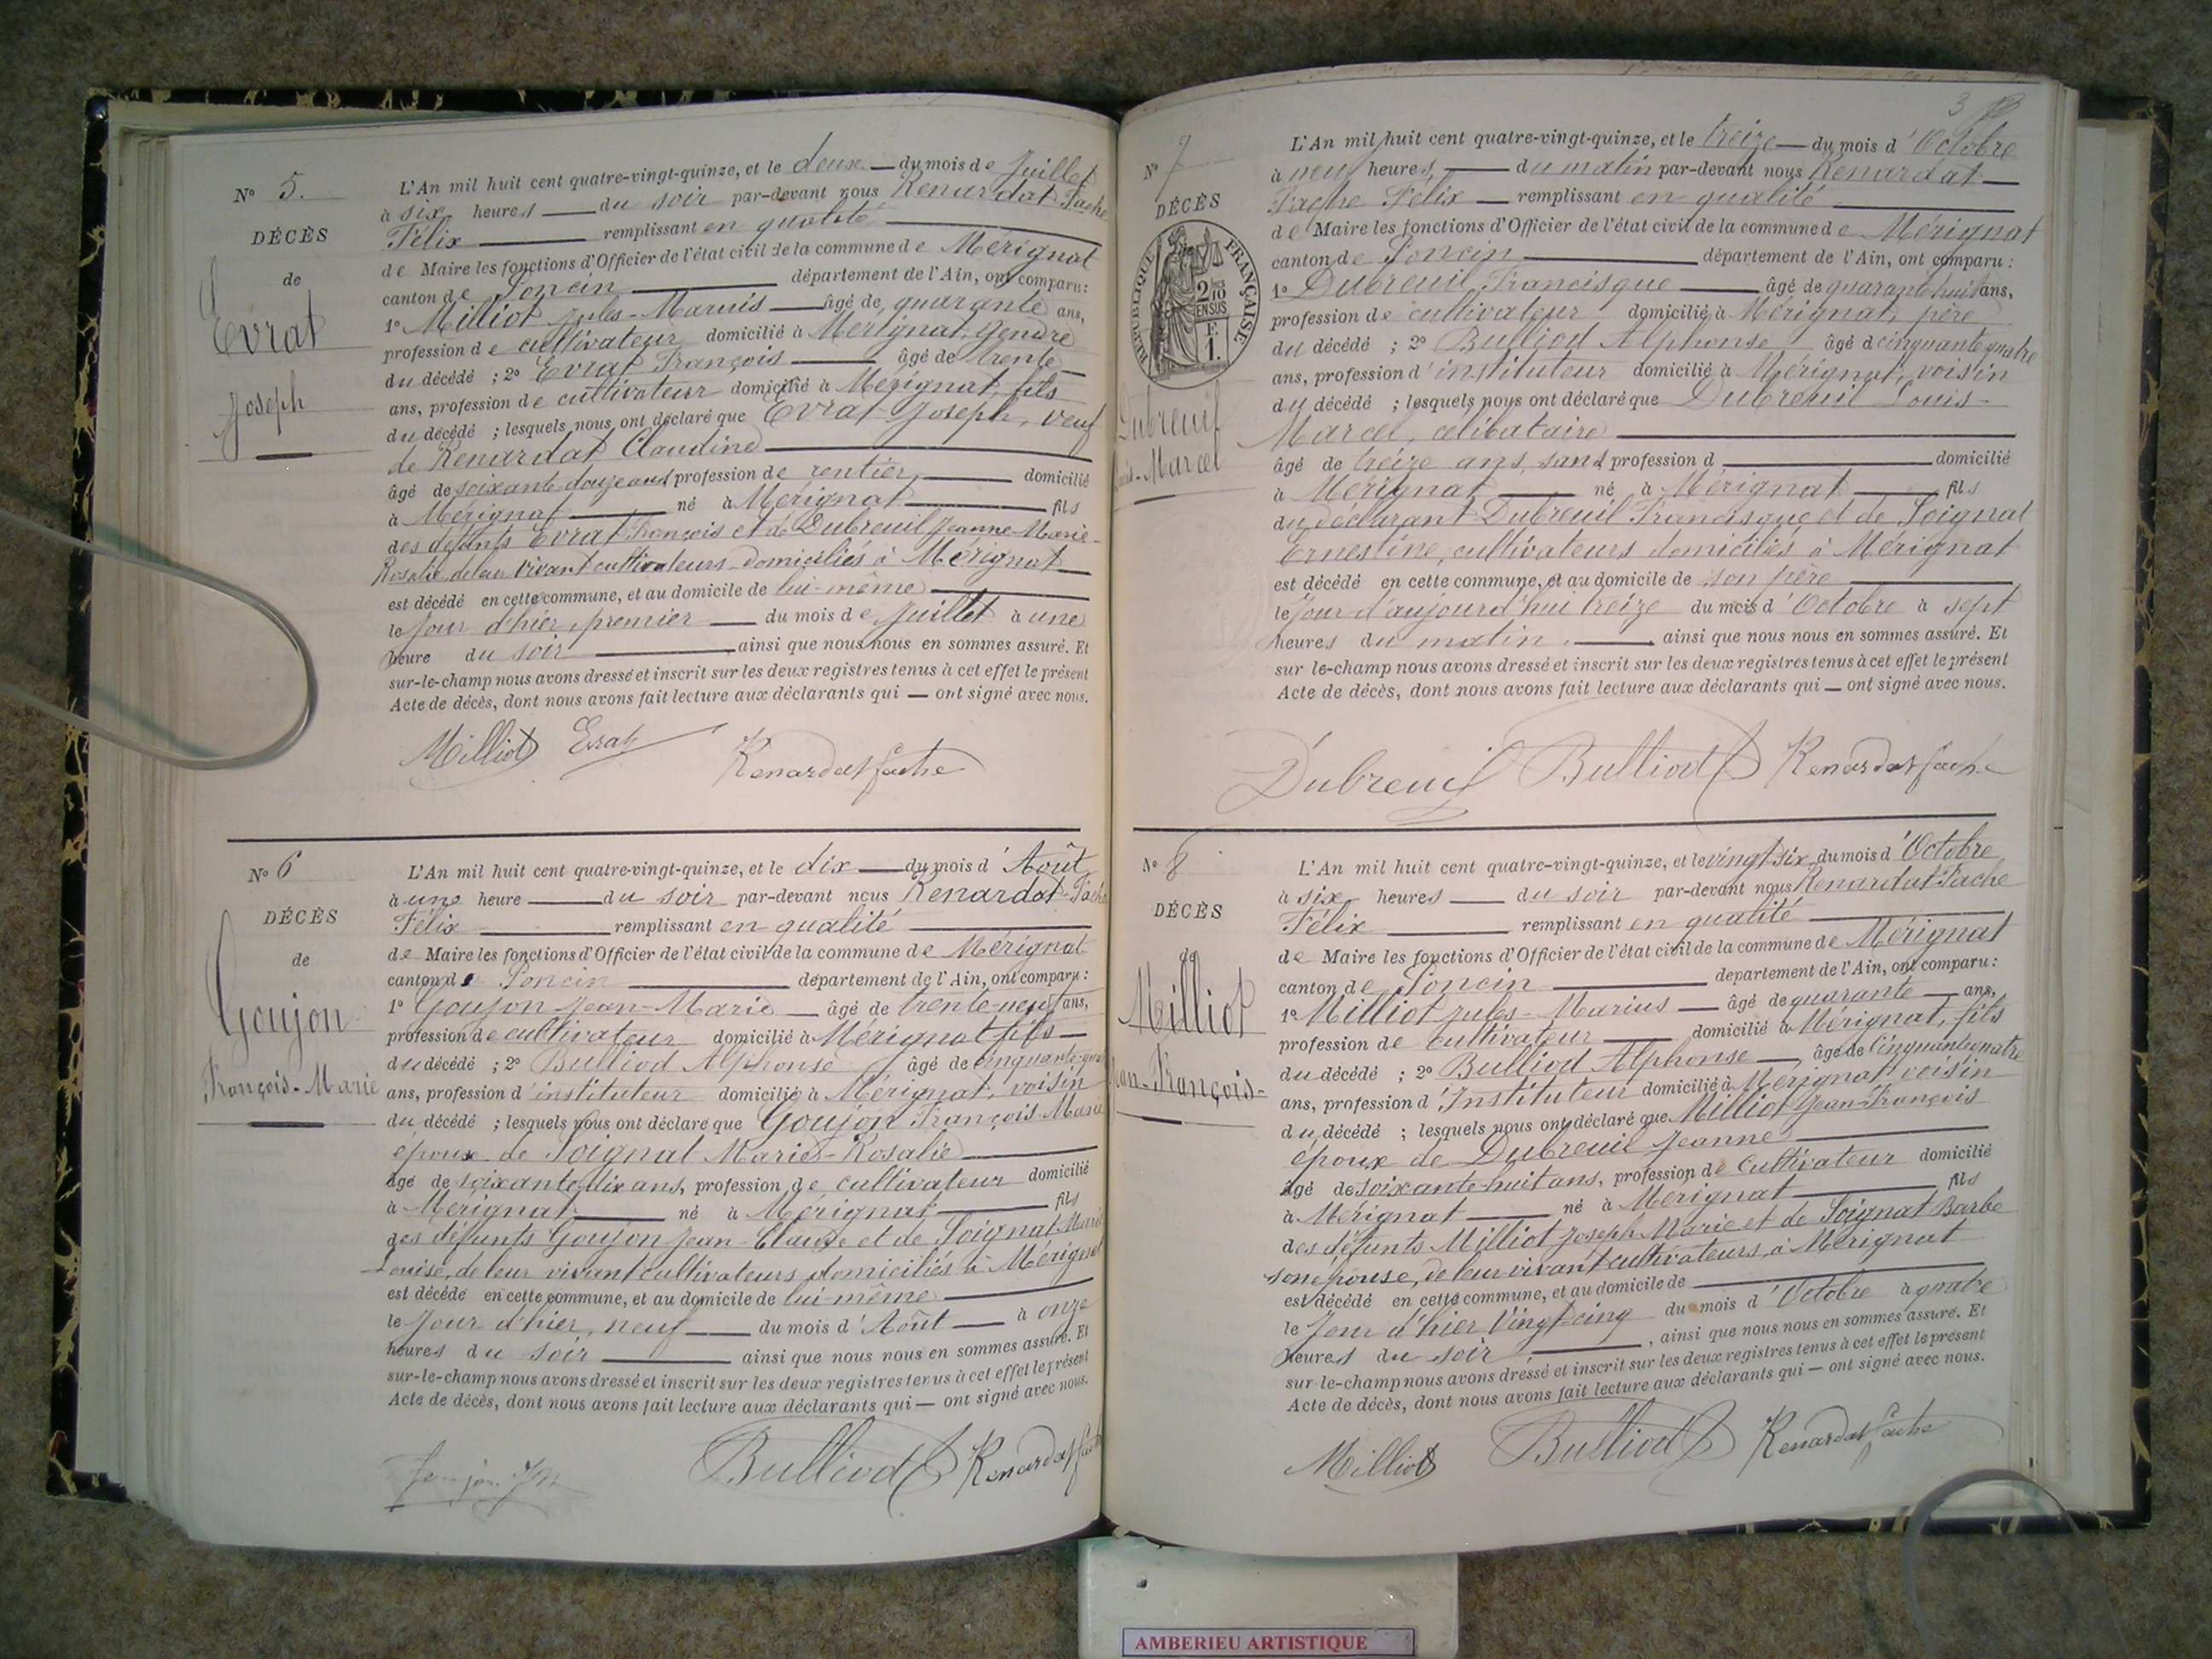 N° 5.
DÉCÈS
de
Evrat
Joseph
L'An mil huit cent quatre-vingt-quinze, et le deux — du mois de Juillet
à six heures — du soir par-devant nous Renardat Fache
Félix — remplissant en qualité —
de Maire les fonctions d'Officier de l'état civil de la commune de Mérignat
canton de Poncin — département de l'Ain, ont comparu :
1° Milliot Jules-Marius — âgé de quarante ans,
profession de cultivateur domicilié à Mérignat, gendre
du décédé ; 2° Evrat François — âgé de trente —
ans, profession de cultivateur domicilié à Mérignat, fils
du décédé ; lesquels nous ont déclaré que Evrat Joseph, veuf
de Renardat Claudine —
âgé de soixante douze ans, profession de rentier, — domicilié
à Mérignat — né à Mérignat — fils
des défunts Evrat François et de Dubreuil Jeanne-Marie-
Rosalie de leur vivant cultivateurs domiciliés à Mérignat —
est décédé en cette commune, et au domicile de lui-même —
le jour d'hier, premier — du mois de Juillet à une
heure du soir — ainsi que nous nous en sommes assuré. Et
sur-le-champ nous avons dressé et inscrit sur les deux registres tenus à cet effet le présent
Acte de décès, dont nous avons fait lecture aux déclarants qui — ont signé avec nous.
Milliot Evrat Renardat fache
N° 6
DÉCÈS
de
Goujon
François-Marie
L'An mil huit cent quatre-vingt-quinze, et le dix — du mois d'Août
à une heure — du soir par-devant nous Renardat-Fache
Félix — remplissant en qualité —
de Maire les fonctions d'Officier de l'état civil de la commune de Mérignat
canton de Poncin — département de l'Ain, ont comparu :
1° Goujon Jean-Marie — âgé de trente-neuf ans,
profession de cultivateur domicilié à Mérignat fils —
du décédé ; 2° Bulliod Alphonse âgé de cinquante-quatre
ans, profession d'instituteur domicilié à Mérignat, voisin
du décédé ; lesquels nous ont déclaré que Goujon François-Marie
époux de Soignat Marie-Rosalie —
âgé de soixante-dix ans, profession de cultivateur domicilié
à Mérignat — né à Mérignat — fils
des défunts Goujon Jean-Claude et de Soignat Marie
Louise, de leur vivant cultivateurs domiciliés à Mérignat
est décédé en cette commune, et au domicile de lui-même —
le jour d'hier, neuf — du mois d'Août — à onze
heures du soir — ainsi que nous nous en sommes assuré. Et
sur-le-champ nous avons dressé et inscrit sur les deux registres tenus à cet effet le présent
Acte de décès, dont nous avons fait lecture aux déclarants qui — ont signé avec nous.
Goujon Bulliod Renardat fache
3
N° 7
DÉCÈS
RÉPUBLIQUE FRANÇAISE
2/10
EN SUS
F.
1.
Dubreuil
Louis-Marcel
L'An mil huit cent quatre-vingt-quinze, et le treize — du mois d'Octobre
à neuf heures, — du matin par-devant nous Renardat —
Fache Félix — remplissant en qualité —
de Maire les fonctions d'Officier de l'état civil de la commune de Mérignat
canton de Poncin — département de l'Ain, ont comparu :
1° Dubreuil Francisque — âgé de quarante huit ans,
profession de cultivateur domicilié à Mérignat, père
du décédé ; 2° Bulliod Alphonse âgé de cinquante quatre
ans, profession d'instituteur domicilié à Mérignat, voisin
du décédé ; lesquels nous ont déclaré que Dubreuil Louis-
Marcel, célibataire —
âgé de treize ans, sans profession d — domicilié
à Mérignat — né à Mérignat — fils
du déclarant Dubreuil Francisque et de Soignat
Ernestine, cultivateurs domiciliés à Mérignat
est décédé en cette commune, et au domicile de son père —
le jour d'aujourd'hui treize du mois d'Octobre à sept
heures du matin, — ainsi que nous nous en sommes assuré. Et
sur-le-champ nous avons dressé et inscrit sur les deux registres tenus à cet effet le présent
Acte de décès, dont nous avons fait lecture aux déclarants qui — ont signé avec nous.
Dubreuil Bulliod Renardat fache
N° 8
DÉCÈS
de
Milliot
Jean-François-
L'An mil huit cent quatre-vingt-quinze, et le vingt-six du mois d'Octobre
à six heures — du soir par-devant nous Renardat-Fache
Félix — remplissant en qualité —
de Maire les fonctions d'Officier de l'état civil de la commune de Mérignat
canton de Poncin — département de l'Ain, ont comparu :
1° Milliot Jules-Marius — âgé de quarante — ans,
profession de cultivateur — domicilié à Mérignat, fils
du décédé ; 2° Bulliod Alphonse —, âgé de cinquante quatre
ans, profession d'Instituteur domicilié à Mérignat voisin
du décédé ; lesquels nous ont déclaré que Milliot Jean-François
époux de Dubreuil Jeanne —
âgé de soixante-huit ans, profession de Cultivateur domicilié
à Mérignat — né à Mérignat — fils
des défunts Milliot Joseph Marie et de Soignat Barbe
son épouse, de leur vivant cultivateurs à Mérignat
est décédé en cette commune, et au domicile de —
le Jour d'hier Vingt-cinq du mois d'Octobre à quatre
heures du soir, —, ainsi que nous nous en sommes assuré. Et
sur-le-champ nous avons dressé et inscrit sur les deux registres tenus à cet effet le présent
Acte de décès, dont nous avons fait lecture aux déclarants qui — ont signé avec nous.
Milliot Bulliod Renardat fache
AMBERIEU ARTISTIQUE